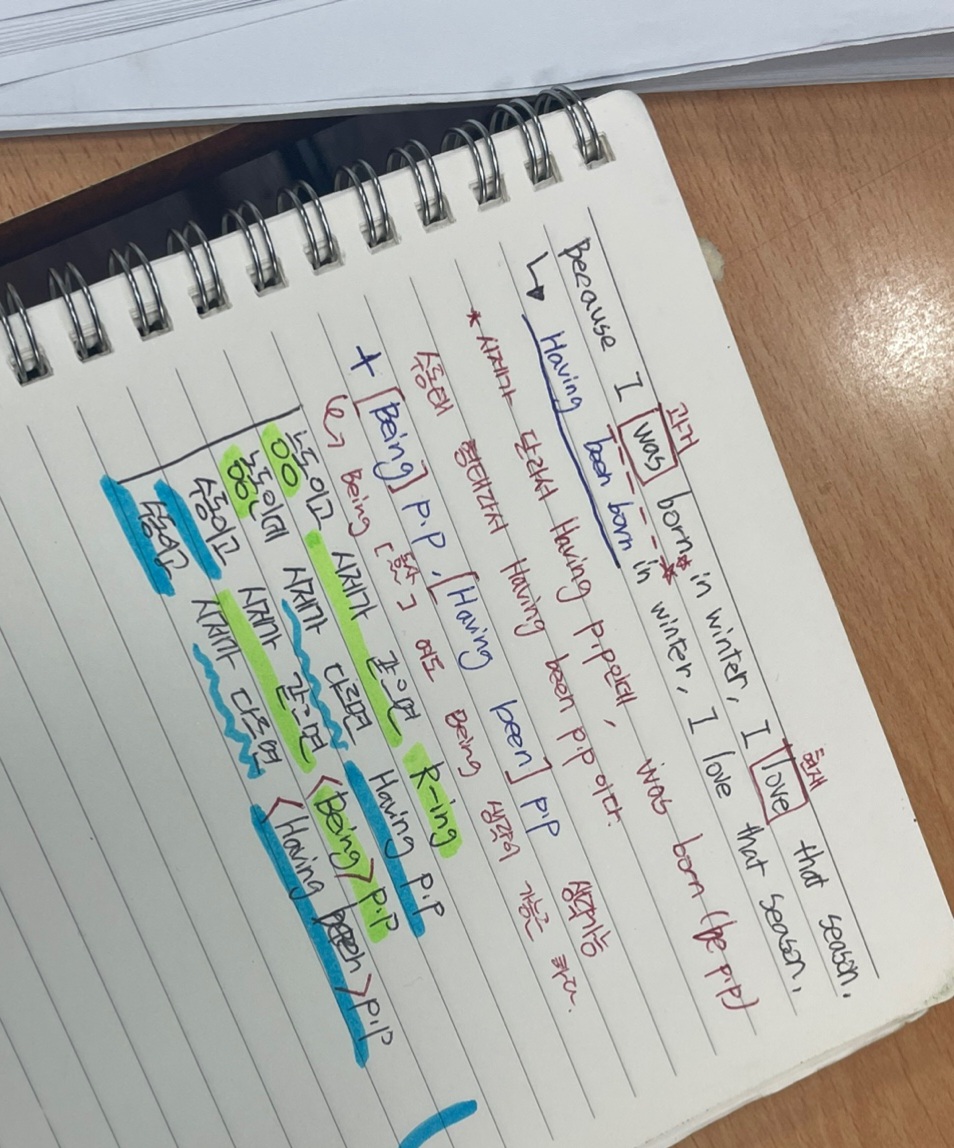 과거 현재
Because I was born* in winter, I love that season.
↳ Having been born in winter, I love that season.
* 시제가 달라서 Having p.p인데, was born (be p.p)
수동태 형태라서 Having been p.p이다.
+ [Being] p.p, [Having been] p.p 생략가능
Being [형] 여도 Being 생략이 가능은 하다.
능동이고 시제가 같으면 R-ing
능동인데 시제가 다르면 Having p.p
수동이고 시제가 같으면 <Being> p.p
수동이고 시제가 다르면 <Having been> p.p